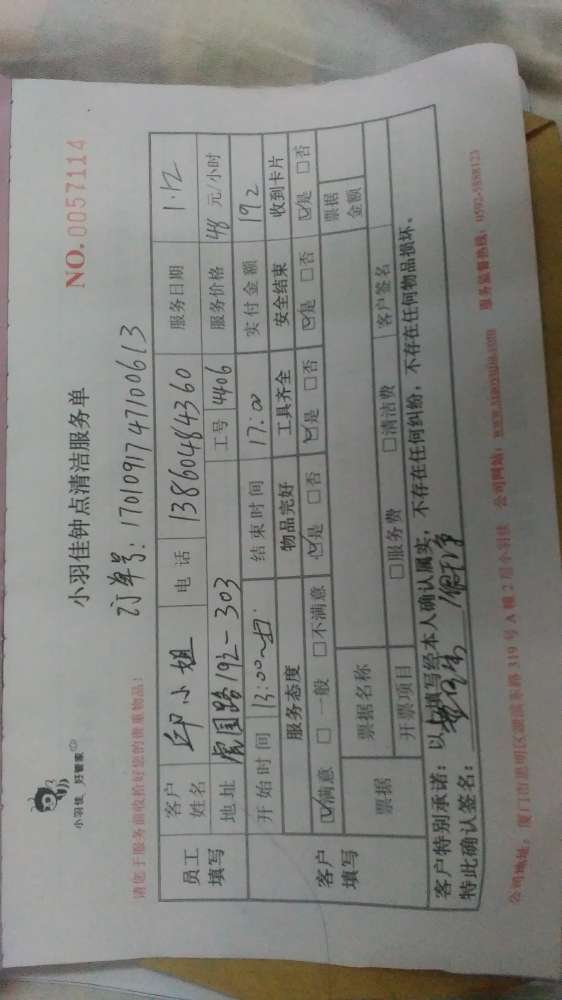 小羽佳 好管家
小羽佳钟点清洁服务单
NO. 0057114
订单号: 1701091747100613
请您于服务前收拾好您的贵重物品!
员工填写 客户姓名 印小姐 电话 13860484360 服务日期 1.12
地址 虎园路192-303 工号 4406 服务价格 48 元/小时
开始时间 13:00~ 结束时间 17:00 实付金额 192
客户填写 服务态度 物品完好 工具齐全 安全结束 收到卡片
☑满意 □一般 □不满意 ☑是 □否 ☑是 □否 ☑是 □否 ☑是 □否
票据 票据名称 票据金额
开票项目 □服务费 □清洁费 客户签名
客户特别承诺: 以上填写经本人确认属实, 不存在任何纠纷, 不存在任何物品损坏。
特此确认签名:
公司地址: 厦门市思明区湖滨东路319号A幢2层小羽佳 公司网站: 服务监督热线: 0592-5888123